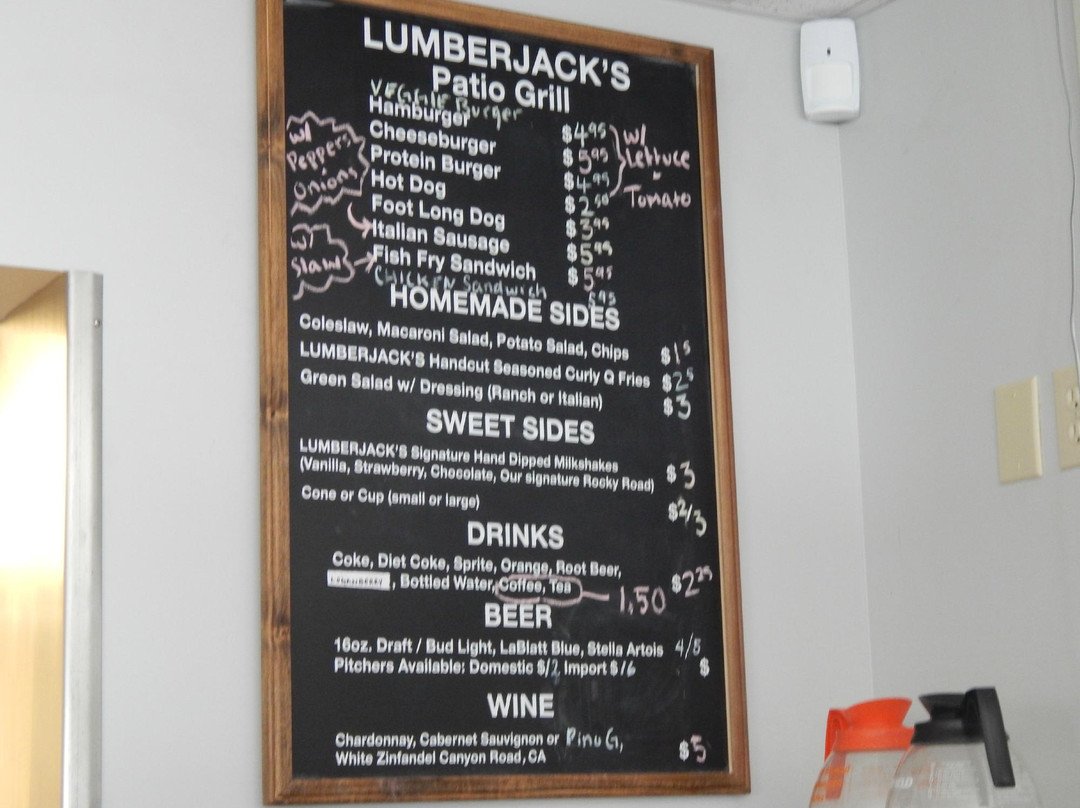 LUMBERJACK'S
Patio Grill
VEGGIE Burger
Hamburger $4.95
Cheeseburger $5.95
Protein Burger $4.95
Hot Dog $2.50
Foot Long Dog $3.95
Italian Sausage $5.95
Fish Fry Sandwich $5.95
CHICKEN Sandwich 5.95
w/
Peppers
Onions
w/
Slaw
w/
Lettuce
Tomato
HOMEMADE SIDES
Coleslaw, Macaroni Salad, Potato Salad, Chips $1⁵
LUMBERJACK'S Handcut Seasoned Curly Q Fries $2⁵
Green Salad w/ Dressing (Ranch or Italian) $3
SWEET SIDES
LUMBERJACK'S Signature Hand Dipped Milkshakes
(Vanilla, Strawberry, Chocolate, Our signature Rocky Road) $3
Cone or Cup (small or large) $2/3
DRINKS
Coke, Diet Coke, Sprite, Orange, Root Beer,
LOGANBERRY, Bottled Water, Coffee, Tea 1.50 $2.25
BEER
16oz. Draft / Bud Light, LaBlatt Blue, Stella Artois 4/5
Pitchers Available: Domestic $12 Import $16 $
WINE
Chardonnay, Cabernet Sauvignon or Pino G,
White Zinfandel Canyon Road, CA $5